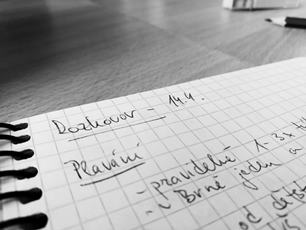 Rozhovor - 14.4.
Plavání
- pravidelně 1-3x
- v Brně jednu a
od děts